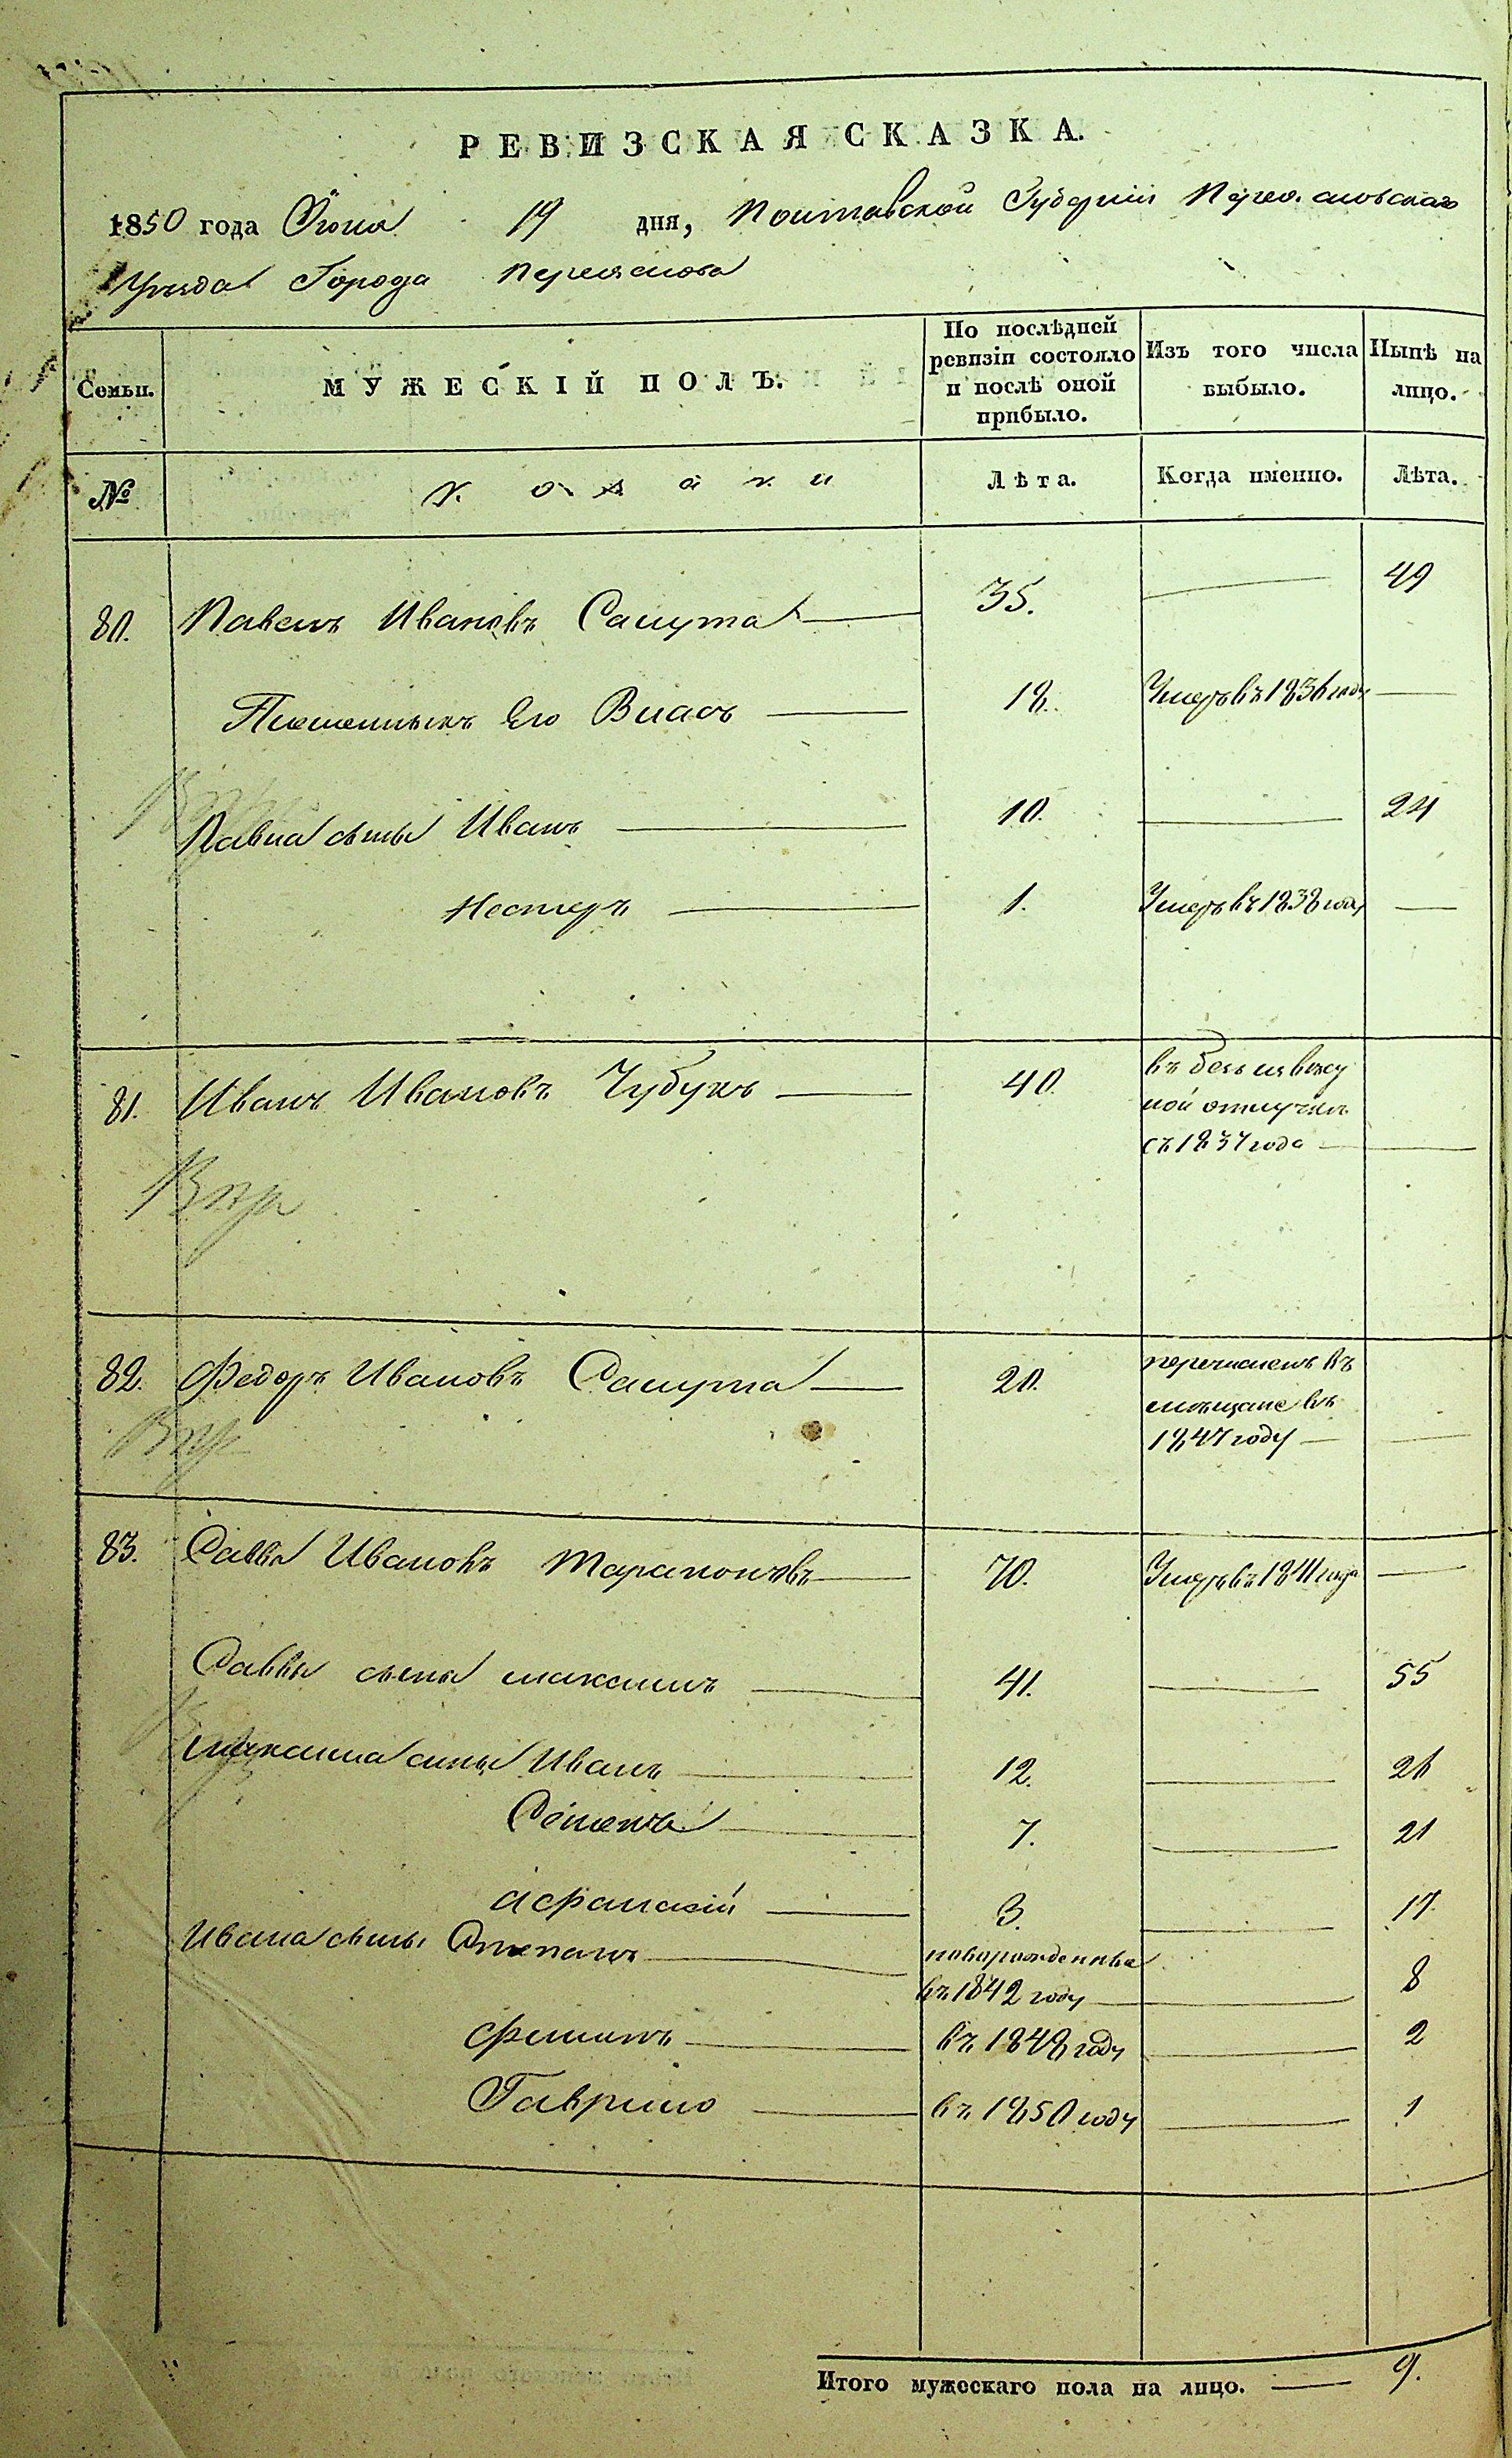 РЕВИЗСКАЯ СКАЗКА.
1850 года Іюня 19 дня, Полтавской Губерніи Переясловскаго
Уѣзда Города Переяслова
Семьи. МУЖЕСКІЙ ПОЛЪ. По послѣдней ревизіи состояло и послѣ оной прибыло. Изъ того числа выбыло. Нынѣ на лицо.
№ Козаки Лѣта. Когда именно. Лѣта.
80. Павелъ Ивановъ Салута 35. 49
Племянникъ его Власъ 18. Умеръ въ 1836 году
Павла сыны Иванъ 10. 24
Нестеръ 1. Умеръ въ 1838 году
81. Иванъ Ивановъ Чубукъ 40. въ безъизвѣсу
ной отлучкѣ
съ 1837 года
Впр
82. Федоръ Ивановъ Салута 20. перечисленъ въ
мѣщане въ
1847 году
Впр
83. Савва Ивановъ 70. Умеръ въ 1841 года
Саввы сынъ Максимъ 41. 55
Максима сыны Иванъ 12. 26
Семенъ 7. 21
Афанасій 3. 17.
Ивана сыны Степанъ новорожденные
въ 1842 году 8
Филипъ въ 1848 году 2
Гаврило въ 1850 году 1
Итого мужескаго пола на лицо. 9.